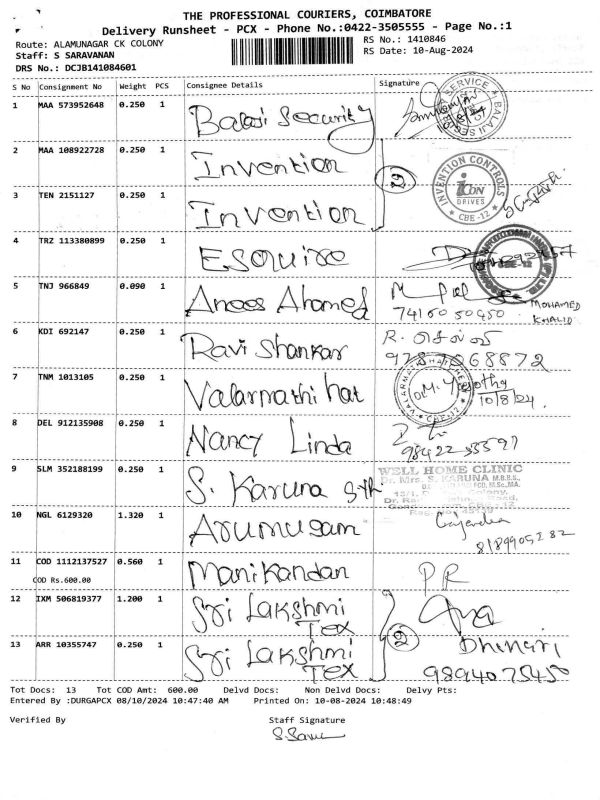 THE PROFESSIONAL COURIERS, COIMBATORE
Delivery Runsheet - PCX - Phone No.:0422-3505555 - Page No.:1
Route: ALAMUNAGAR CK COLONY
RS No.: 1410846
Staff: S SARAVANAN
RS Date: 10-Aug-2024
DRS No.: DCJB141084601
S No Consignment No Weight PCS Consignee Details Signature
1 MAA 573952648 0.250 1 Balaji Security
10/8/24
2 MAA 108922728 0.250 1 Invention
INVENTION CONTROLS
icon
DRIVES
* CBE-12 *
3 TEN 2151127 0.250 1 Invention
4 TRZ 113380899 0.250 1 Esquire
5 TNJ 966849 0.090 1 Anees Ahamed
74160 50450
MOHAMED
KHALID
6 KDI 692147 0.250 1 Ravi Shankar
R. செல்வி
7 TNM 1013105 0.250 1 Valarmathi hat
10/8/24.
8 DEL 912135908 0.250 1 Nancy Linda
9 SLM 352188199 0.250 1 S. Karuna
WELL HOME CLINIC
Dr. Mrs. S. KARUNA M.B.B.S.,
10 NGL 6129320 1.320 1 Arumugam
Gajendra
11 COD 1112137527 0.560 1 Manikandan
PR
COD Rs.600.00
12 IXM 506819377 1.200 1 Sri Lakshmi
Tex
2
13 ARR 10355747 0.250 1 Sri Lakshmi
Tex
98940 75450
Tot Docs: 13 Tot COD Amt: 600.00 Delvd Docs: Non Delvd Docs: Delvy Pts:
Entered By :DURGAPCX 08/10/2024 10:47:40 AM Printed On: 10-08-2024 10:48:49
Verified By Staff Signature